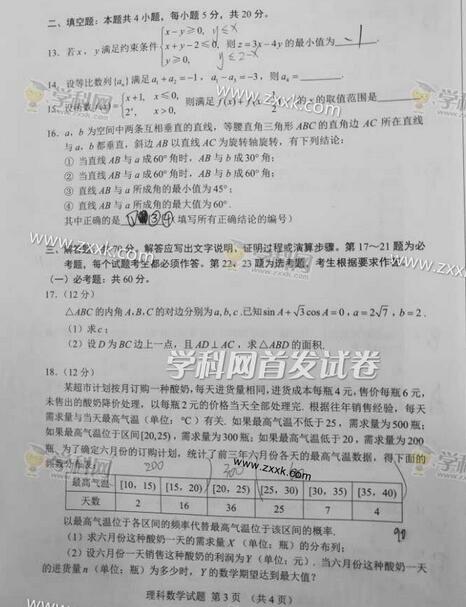 二、填空题：本题共4小题，每小题5分，共20分。
x−y≥0, y≤x
13. 若x，y满足约束条件 x+y−2≤0, 则z=3x−4y的最小值为 −1 .
y≥0, y≤2−x
14. 设等比数列{aₙ}满足a₁+a₂=−1，a₁−a₃=−3，则a₄=
x+1, x≤0,
15. 则满足 的x的取值范围是
2ˣ, x>0,
16. a，b为空间中两条互相垂直的直线，等腰直角三角形ABC的直角边AC所在直线
与a，b都垂直，斜边AB以直线AC为旋转轴旋转，有下列结论：
① 当直线AB与a成60°角时，AB与b成30°角；
② 当直线AB与a成60°角时，AB与b成60°角；
③ 直线AB与a所成角的最小值为45°；
④ 直线AB与a所成角的最大值为60°.
其中正确的是 ③④ 填写所有正确结论的编号）
三、解答题：共70分。解答应写出文字说明、证明过程或演算步骤。第17～21题为必
考题，每个试题考生都必须作答。第22、23题为选考题，考生根据要求作答。
（一）必考题：共60分。
17.（12分）
△ABC的内角A,B,C的对边分别为a,b,c.已知sin A+√3cos A=0，a=2√7，b=2.
（1）求c；
（2）设D为BC边上一点，且AD⊥AC，求△ABD的面积.
学科网首发试卷
18.（12分）
某超市计划按月订购一种酸奶，每天进货量相同，进货成本每瓶4元，售价每瓶6元，
未售出的酸奶降价处理，以每瓶2元的价格当天全部处理完. 根据往年销售经验，每天
需求量与当天最高气温（单位：℃）有关. 如果最高气温不低于25，需求量为500瓶；
如果最高气温位于区间[20,25)，需求量为300瓶；如果最高气温低于20，需求量为200
瓶. 为了确定六月份的订购计划，统计了前三年六月份各天的最高气温数据，得下面的
频数分布表：
200 300
最高气温 [10, 15) [15, 20) [20, 25) [25, 30) [30, 35) [35, 40)
天数 2 16 36 25 7 4
90
以最高气温位于各区间的频率代替最高气温位于该区间的概率.
（1）求六月份这种酸奶一天的需求量X（单位：瓶）的分布列；
（2）设六月份一天销售这种酸奶的利润为Y（单位：元）. 当六月份这种酸奶一天
的进货量n（单位：瓶）为多少时，Y的数学期望达到最大值？
理科数学试题 第3页 （共4页）
学科网
www.zxxk.com